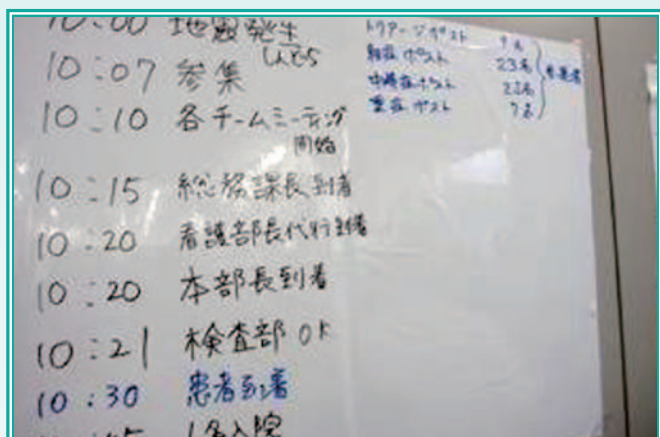 10:00 地震発生
10:07 参集
10:10 各チームミーティング
開始
10:15 総務課長到着
10:20 看護部長代行到着
10:20 本部長到着
10:21 検査部 OK
10:30 患者到着
1名入院
トリアージポスト
軽症ポスト 23名
中等症ポスト 22名
重症ポスト 7名